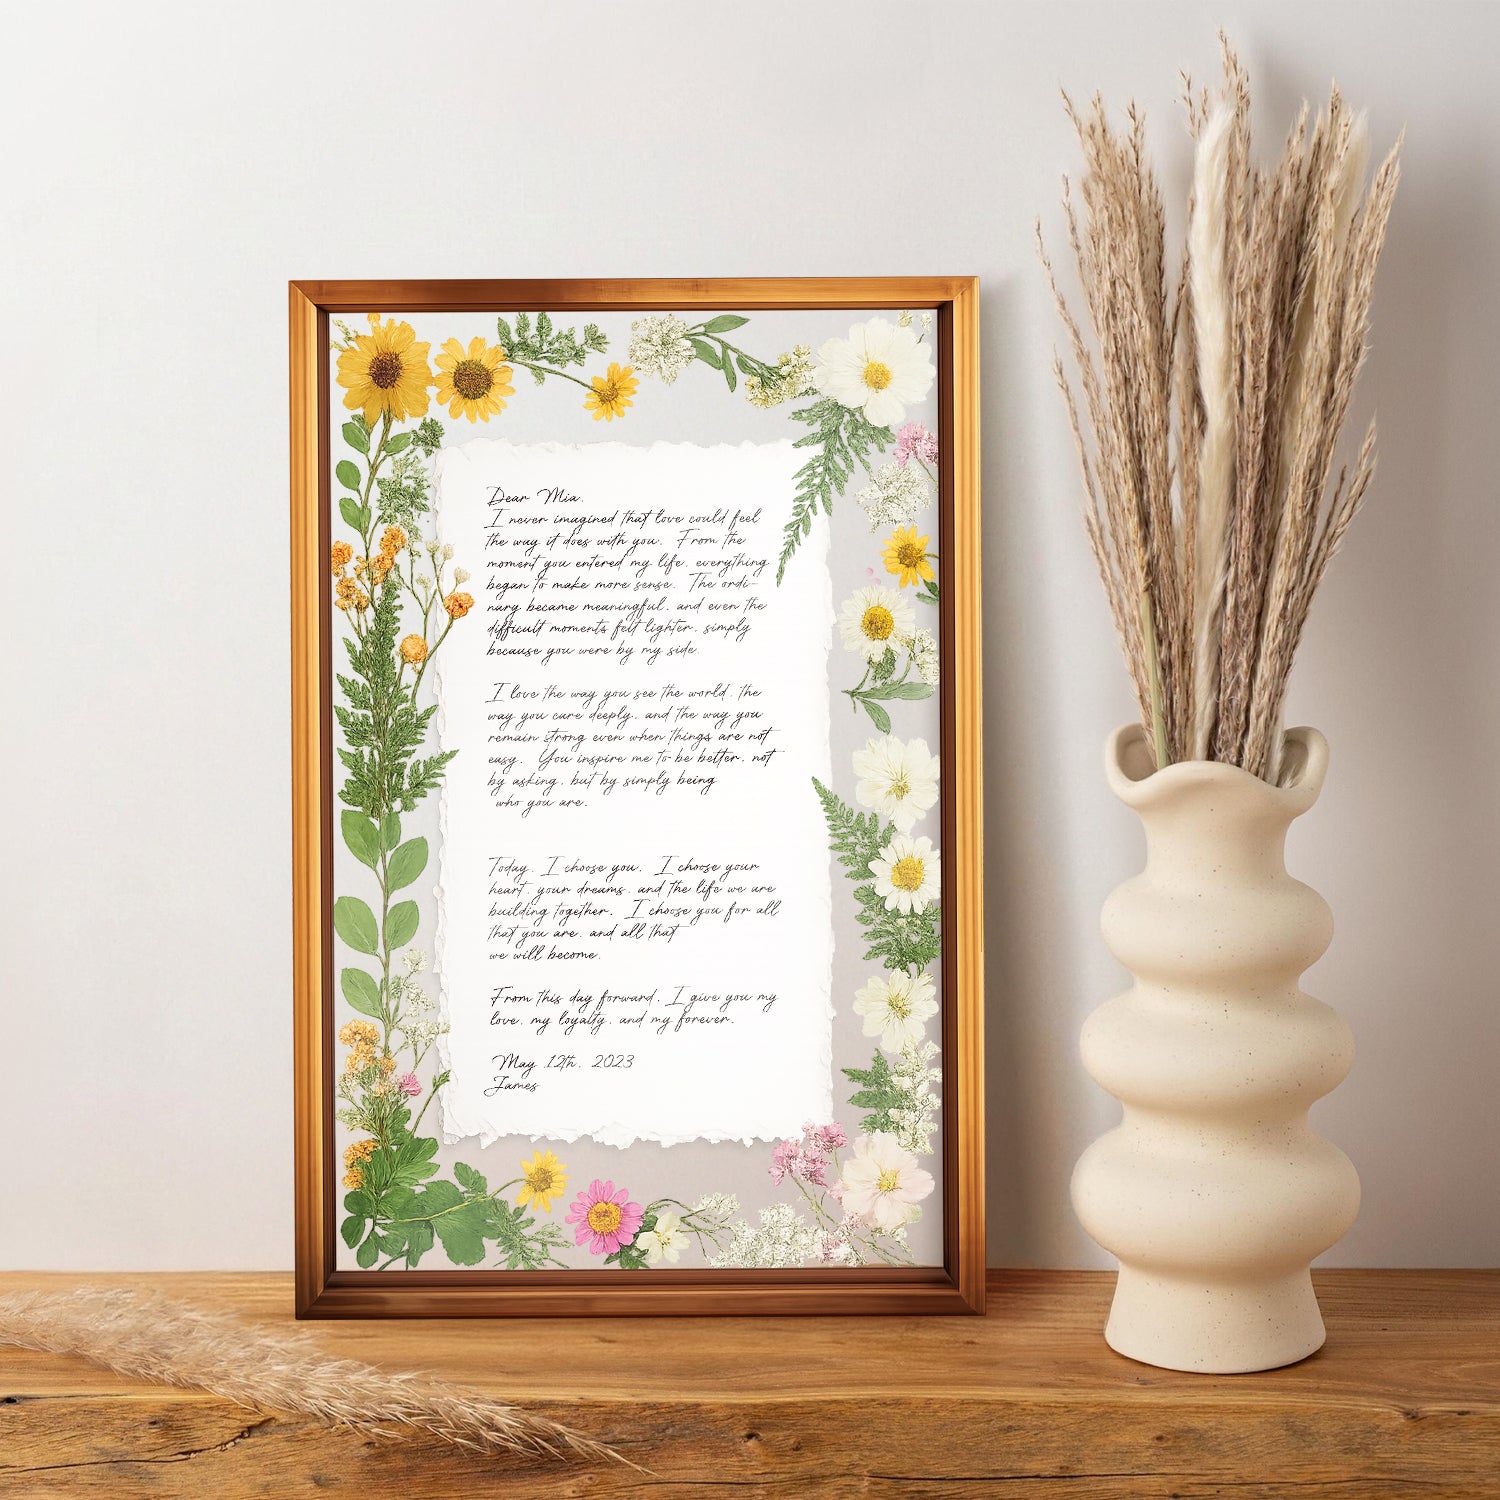 Dear Mia,
I never imagined that love could feel
the way it does with you. From the
moment you entered my life, everything
began to make more sense. The ordi-
nary became meaningful, and even the
difficult moments felt lighter, simply
because you were by my side.
I love the way you see the world, the
way you care deeply, and the way you
remain strong even when things are not
easy. You inspire me to be better, not
by asking, but by simply being
who you are.
Today, I choose you. I choose your
heart, your dreams, and the life we are
building together. I choose you for all
that you are, and all that
we will become.
From this day forward, I give you my
love, my loyalty, and my forever.
May 12th, 2023
James